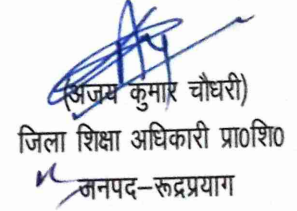 (अजय कुमार चौधरी)
जिला शिक्षा अधिकारी प्रा0शि0
जनपद-रूद्रप्रयाग